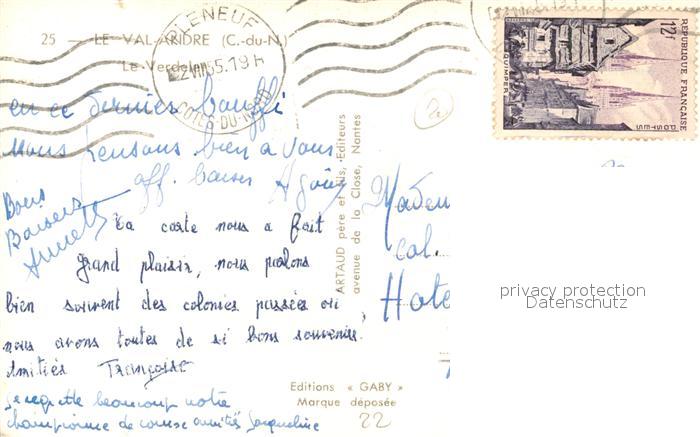 25 — LE VAL-ANDRE (C.-du-N.)
Le Verdelet
PLENEUF
55.19 H
COTES-DU-NORD
REPUBLIQUE FRANÇAISE
12F
POSTES
QUIMPER
en ce dernier
nous pensons bien a vous
aff. baiser
Bons
Baisers
Annette
La carte nous a fait
grand plaisir, nous parlons
bien souvent des colonies passées où
nous avons toutes de si bons souvenirs.
Amitiés Françoise
je regrette beaucoup notre
championne de course amitiés Jacqueline
ARTAUD père et fils, Editeurs
avenue de la Close, Nantes
Madem
Col.
Hote
privacy protection
Datenschutz
Editions « GABY »
Marque déposée
22